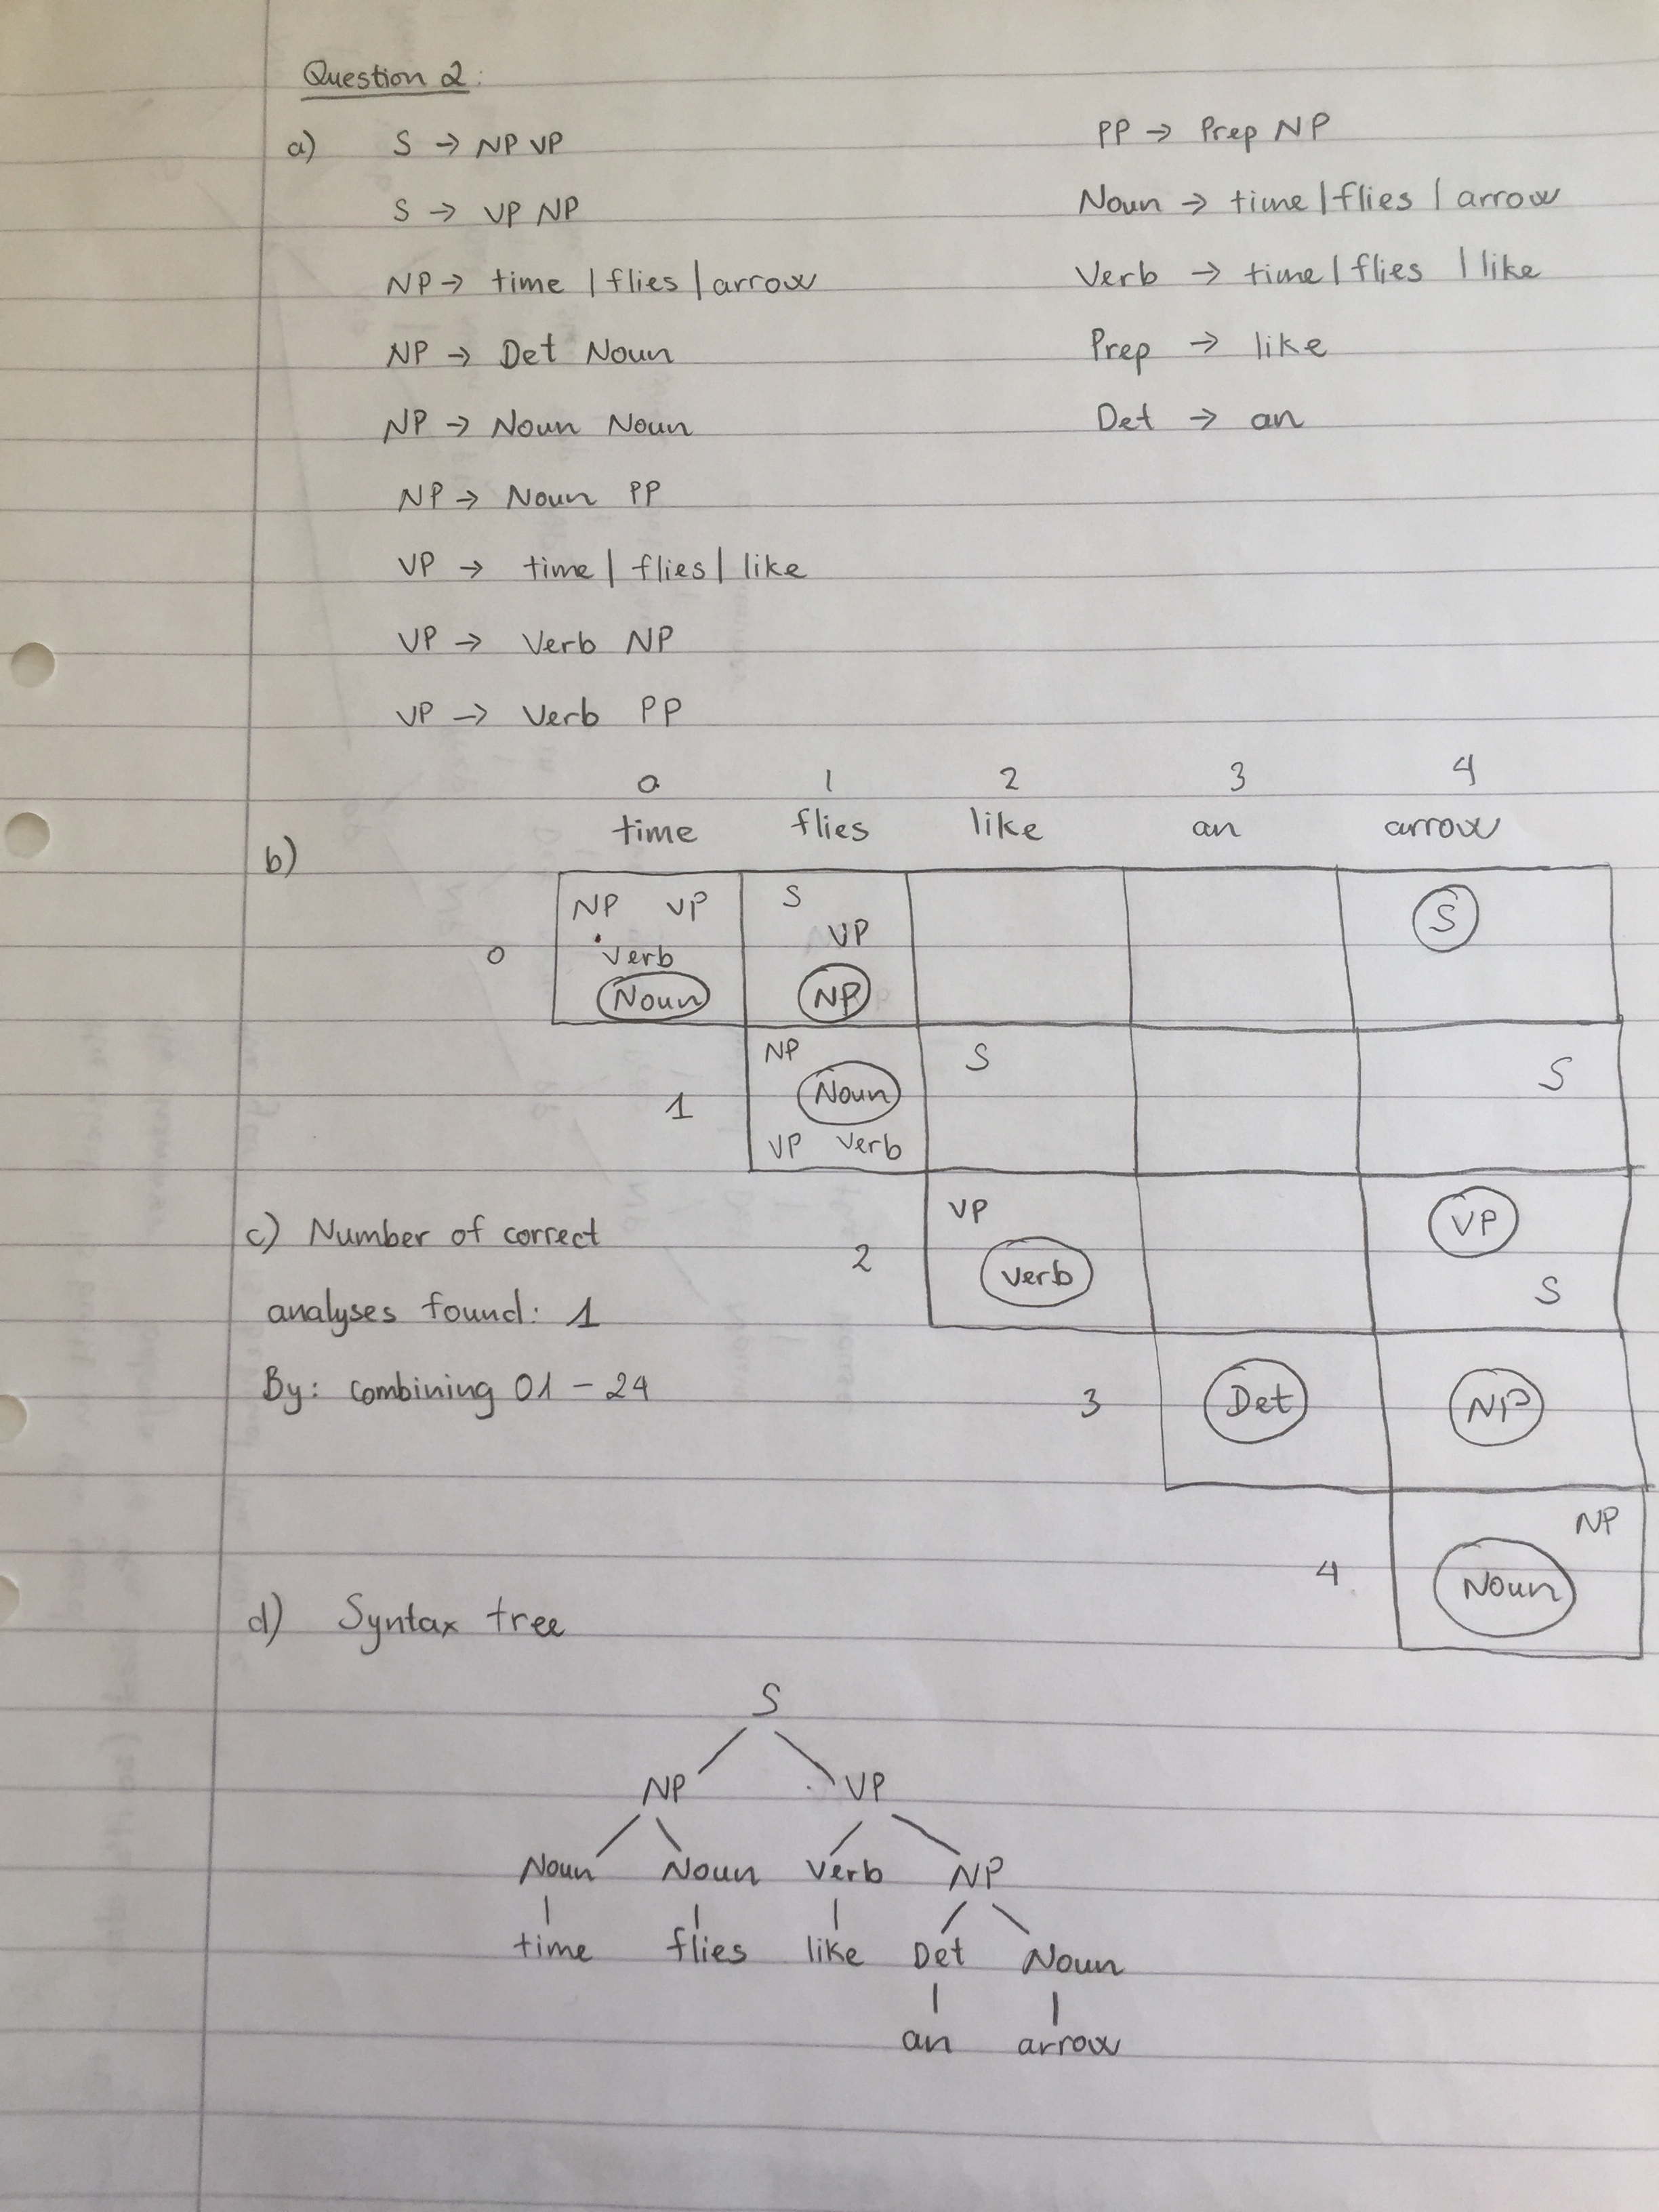 Question 2:
a) S → NP VP
S → VP NP
NP → time | flies | arrow
NP → Det Noun
NP → Noun Noun
NP → Noun PP
VP → time | flies | like
VP → Verb NP
VP → Verb PP
PP → Prep NP
Noun → time | flies | arrow
Verb → time | flies | like
Prep → like
Det → an
0 1 2 3 4
time flies like an arrow
b)
NP VP S S
VP
0 Verb
Noun NP
NP S S
1 Noun
VP Verb
VP VP
2 Verb S
3 Det NP
NP
4 Noun
c) Number of correct
analyses found: 1
By: combining 01 - 24
d) Syntax tree
S
NP VP
Noun Noun Verb NP
time flies like Det Noun
an arrow